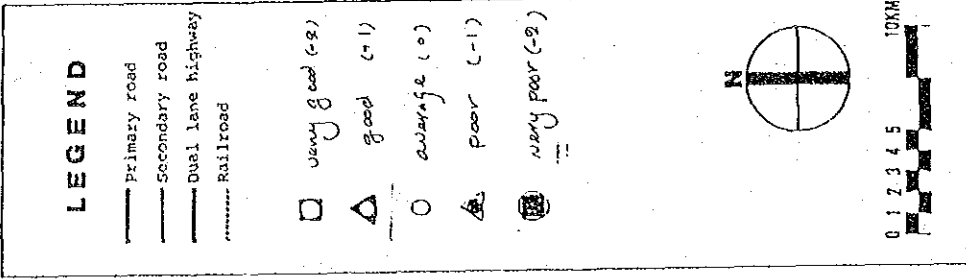 LEGEND
Primary road
Secondary road
Dual lane highway
Railroad
very good (+2)
good (+1)
average (0)
poor (-1)
very poor (-2)
N
0 1 2 3 4 5 10KM